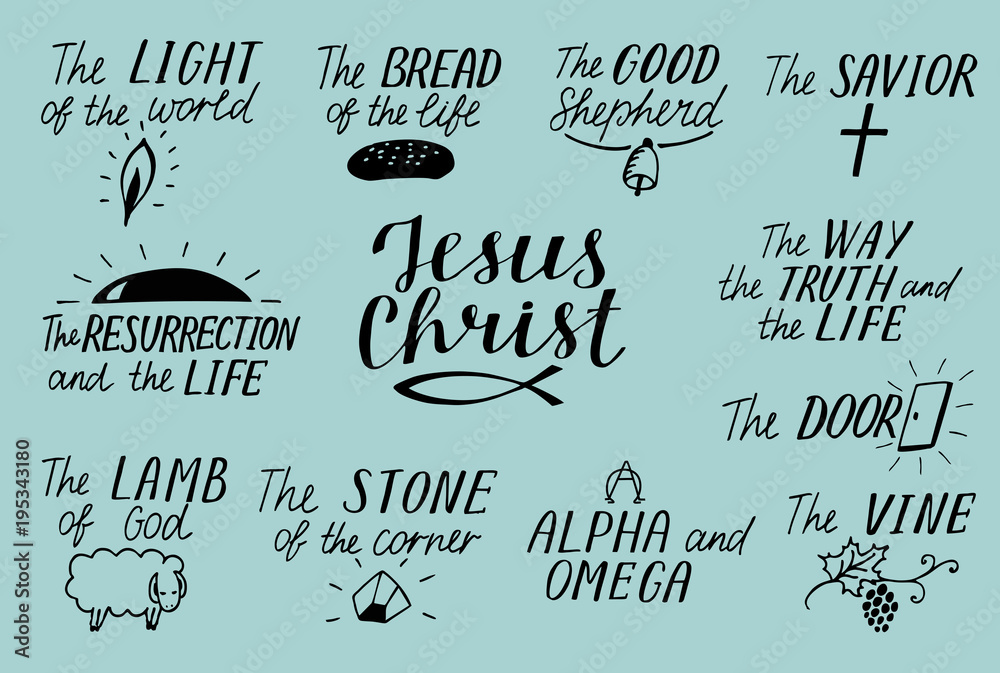 The LIGHT
of the world
The BREAD
of the life
The GOOD
Shepherd
The SAVIOR
Jesus
Christ
The WAY
the TRUTH and
the LIFE
The RESURRECTION
and the LIFE
The DOOR
The LAMB
of God
The STONE
of the corner
ALPHA and
OMEGA
The VINE
Adobe Stock | #195343180